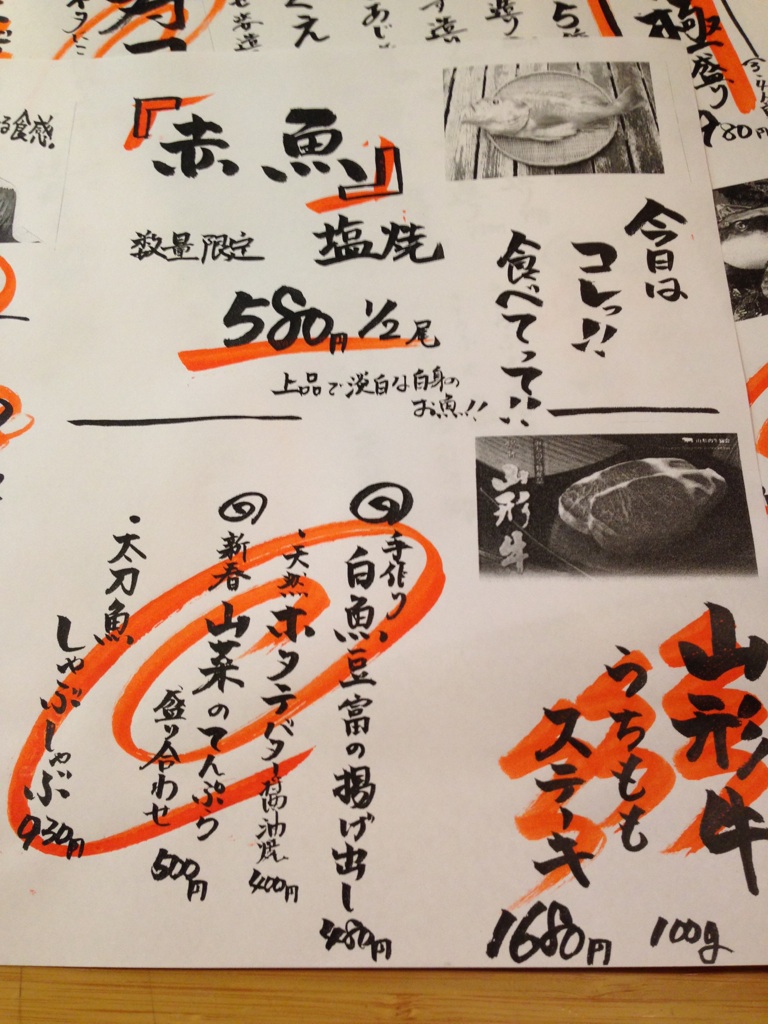 『赤魚』
数量限定 塩焼
580円 1/2尾
上品で淡白な白身の
お魚!!
今日は
コレっ!!
食べてって!!
山形牛
山形牛
うちもも
ステーキ
1680円 100g
手作り
白魚豆富の揚げ出し
480円
・天然ホタテバター醤油焼
400円
新春山菜のてんぷら
盛り合わせ
500円
・太刀魚
しゃぶしゃぶ
930円
る食感!
極盛り
980円